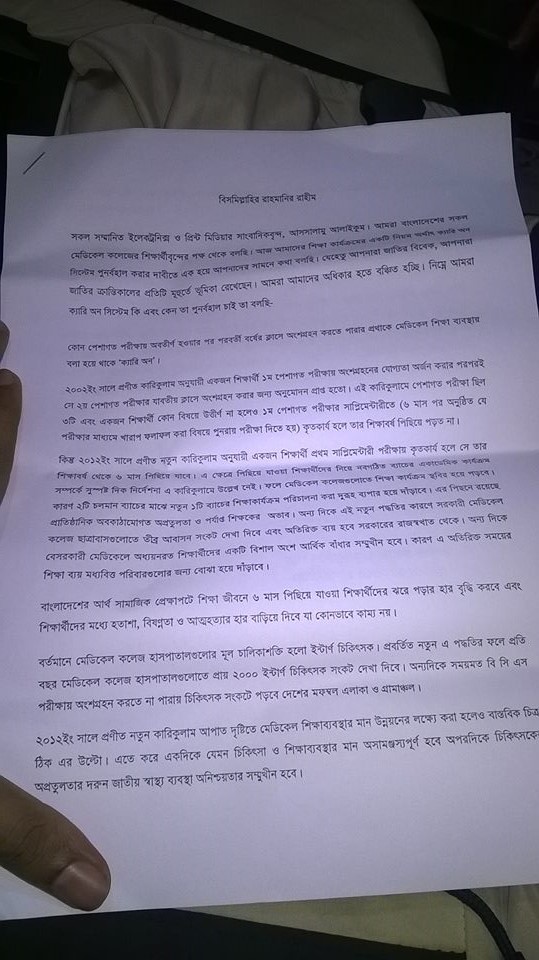 বিসমিল্লাহির রাহমানির রাহীম
সকল সম্মানিত ইলেকট্রনিক্স ও প্রিন্ট মিডিয়ার সাংবাদিকবৃন্দ, আসসালামু আলাইকুম। আমরা বাংলাদেশের সকল
মেডিকেল কলেজের শিক্ষার্থীবৃন্দের পক্ষ থেকে বলছি। আজ আমাদের শিক্ষা কার্যক্রমের একটি নিয়ম অর্থাৎ ক্যারি অন
সিস্টেম পুনর্বহাল করার দাবীতে এক হয়ে আপনাদের সামনে কথা বলছি। যেহেতু আপনারা জাতির বিবেক, আপনারা
জাতির ক্রান্তিকালের প্রতিটি মূহুর্তে ভূমিকা রেখেছেন। আমরা আমাদের অধিকার হতে বঞ্চিত হচ্ছি। নিম্নে আমরা
ক্যারি অন সিস্টেম কি এবং কেন তা পুনর্বহাল চাই তা বলছি-
কোন পেশাগত পরীক্ষায় অবতীর্ণ হওয়ার পর পরবর্তী বর্ষের ক্লাসে অংশগ্রহন করতে পারার প্রথাকে মেডিকেল শিক্ষা ব্যবস্থায়
বলা হয়ে থাকে ‘ক্যারি অন’।
২০০২ইং সালে প্রণীত কারিকুলাম অনুযায়ী একজন শিক্ষার্থী ১ম পেশাগত পরীক্ষায় অংশগ্রহনের যোগ্যতা অর্জন করার পরপরই
সে ২য় পেশাগত পরীক্ষার যাবতীয় ক্লাসে অংশগ্রহন করার জন্য অনুমোদন প্রাপ্ত হতো। এই কারিকুলামে পেশাগত পরীক্ষা ছিল
৩টি এবং একজন শিক্ষার্থী কোন বিষয়ে উত্তীর্ণ না হলেও ১ম পেশাগত পরীক্ষার সাপ্লিমেন্টারীতে (৬ মাস পর অনুষ্ঠিত যে
পরীক্ষার মাধ্যমে খারাপ ফলাফল করা বিষয়ে পুনরায় পরীক্ষা দিতে হয়) কৃতকার্য হলে তার শিক্ষাবর্ষ পিছিয়ে পড়ত না।
কিন্তু ২০১২ইং সালে প্রণীত নতুন কারিকুলাম অনুযায়ী একজন শিক্ষার্থী প্রথম সাপ্লিমেন্টারী পরীক্ষায় কৃতকার্য হলে সে তার
শিক্ষাবর্ষ থেকে ৬ মাস পিছিয়ে যাবে। এ ক্ষেত্রে পিছিয়ে যাওয়া শিক্ষার্থীদের নিয়ে নবগঠিত ব্যাচের একাডেমিক কার্যক্রম
সম্পর্কে সুস্পষ্ট দিক নির্দেশনা এ কারিকুলামে উল্লেখ নেই। ফলে মেডিকেল কলেজগুলোতে শিক্ষা কার্যক্রম স্থবির হয়ে পড়বে।
কারণ ২টি চলমান ব্যাচের মাঝে নতুন ১টি ব্যাচের শিক্ষাকার্যক্রম পরিচালনা করা দুরূহ ব্যপার হয়ে দাঁড়াবে। এর পিছনে রয়েছে
প্রাতিষ্ঠানিক অবকাঠামোগত অপ্রতুলতা ও পর্যাপ্ত শিক্ষকের অভাব। অন্য দিকে এই নতুন পদ্ধতির কারণে সরকারী মেডিকেল
কলেজ ছাত্রাবাসগুলোতে তীব্র আবাসন সংকট দেখা দিবে এবং অতিরিক্ত ব্যয় হবে সরকারের রাজস্বখাত থেকে। অন্য দিকে
বেসরকারী মেডিকেলে অধ্যয়নরত শিক্ষার্থীদের একটি বিশাল অংশ আর্থিক বাঁধার সম্মুখীন হবে। কারণ এ অতিরিক্ত সময়ের
শিক্ষা ব্যয় মধ্যবিত্ত পরিবারগুলোর জন্য বোঝা হয়ে দাঁড়াবে।
বাংলাদেশের আর্থ সামাজিক প্রেক্ষাপটে শিক্ষা জীবনে ৬ মাস পিছিয়ে যাওয়া শিক্ষার্থীদের ঝরে পড়ার হার বৃদ্ধি করবে এবং
শিক্ষার্থীদের মধ্যে হতাশা, বিষণ্নতা ও আত্মহত্যার হার বাড়িয়ে দিবে যা কোনভাবে কাম্য নয়।
বর্তমানে মেডিকেল কলেজ হাসপাতালগুলোর মূল চালিকাশক্তি হলো ইন্টার্ণ চিকিৎসক। প্রবর্তিত নতুন এ পদ্ধতির ফলে প্রতি
বছর মেডিকেল কলেজ হাসপাতালগুলোতে প্রায় ২০০০ ইন্টার্ণ চিকিৎসক সংকট দেখা দিবে। অন্যদিকে সময়মত বি সি এস
পরীক্ষায় অংশগ্রহন করতে না পারায় চিকিৎসক সংকটে পড়বে দেশের মফস্বল এলাকা ও গ্রামাঞ্চল।
২০১২ইং সালে প্রণীত নতুন কারিকুলাম আপাত দৃষ্টিতে মেডিকেল শিক্ষাব্যবস্থার মান উন্নয়নের লক্ষ্যে করা হলেও বাস্তবিক চিত্র
ঠিক এর উল্টো। এতে করে একদিকে যেমন চিকিৎসা ও শিক্ষাব্যবস্থার মান অসামঞ্জস্যপূর্ণ হবে অপরদিকে চিকিৎসকের
অপ্রতুলতার দরুন জাতীয় স্বাস্থ্য ব্যবস্থা অনিশ্চয়তার সম্মুখীন হবে।